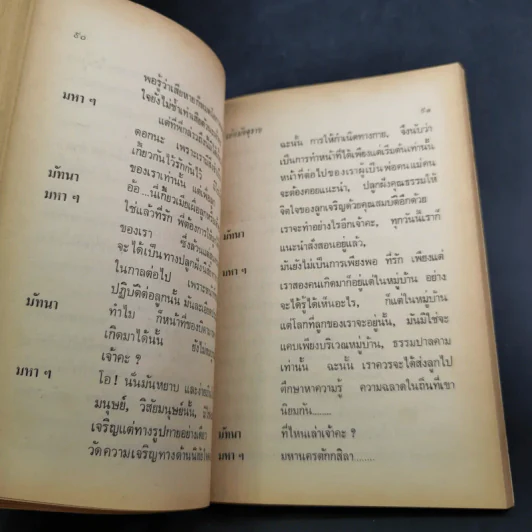 ๕๐
พอรู้ว่าเสียหาย
มหา ฯ ใจยังไม่ช้ำเท่าเสีย
แต่ที่พี่กล่าว
ดอกนะ เพราะเรามี
เกี่ยวกันไว้รักกันไว้
มัทนา ของเราเท่านั้น
มหา ฯ อ้อ...นี่เกี่ยวเมื่อ
ใช่แล้วที่รัก พี่ต้องการ
ของเรา ซึ่งส่วน
จะได้เป็นทางปลูกฝัง
ในกาลต่อไป เพราะ
มัทนา ปฏิบัติต่อลูกนั้น
ทำไม ก็หน้าที่ของ
เกิดมาได้นั้น
เจ้าคะ ?
มหา ฯ โอ ! นั่นมันหยาบ และง่าย
มนุษย์, วิสัยมนุษย์นั้น,
เจริญแต่ทางรูปกายอย่างเดียว
วัดความเจริญทางด้าน
๕๑
ฉะนั้น การให้กำเนิดทางกาย, จึงนับว่า
เป็นการทำหน้าที่ได้เพียงแต่เริ่มต้นเท่านั้น
หน้าที่ต่อไปของเราผู้เป็นพ่อคนแม่คน
จะต้องคอยแนะนำ, ปลูกฝังคุณธรรมให้
จิตใจของลูกเจริญด้วยคุณสมบัติอีกด้วย
มัทนา เราจะทำอย่างไรอีกเจ้าคะ, ทุกวันนี้เราก็
แนะนำสั่งสอนอยู่แล้ว,
มหา ฯ มันยังไม่เป็นการเพียงพอ ที่รัก เพียงแต่
เราสองคนเกิดมาก็อยู่แต่ในหมู่บ้าน อย่าง
จะได้รู้ได้เห็นอะไร, ก็แต่ในหมู่บ้าน
แต่โลกที่ลูกของเราจะอยู่นั้น, มันมิใช่จะ
แคบเพียงบริเวณหมู่บ้าน, ธรรมปาลคาม
เท่านั้น ฉะนั้น เราควรจะได้ส่งลูกไป
ศึกษาหาความรู้ ความฉลาดในถิ่นที่เขา
นิยมกัน......
มัทนา ที่ไหนเล่าเจ้าคะ ?
มหา ฯ มหานครตักกสิลา........